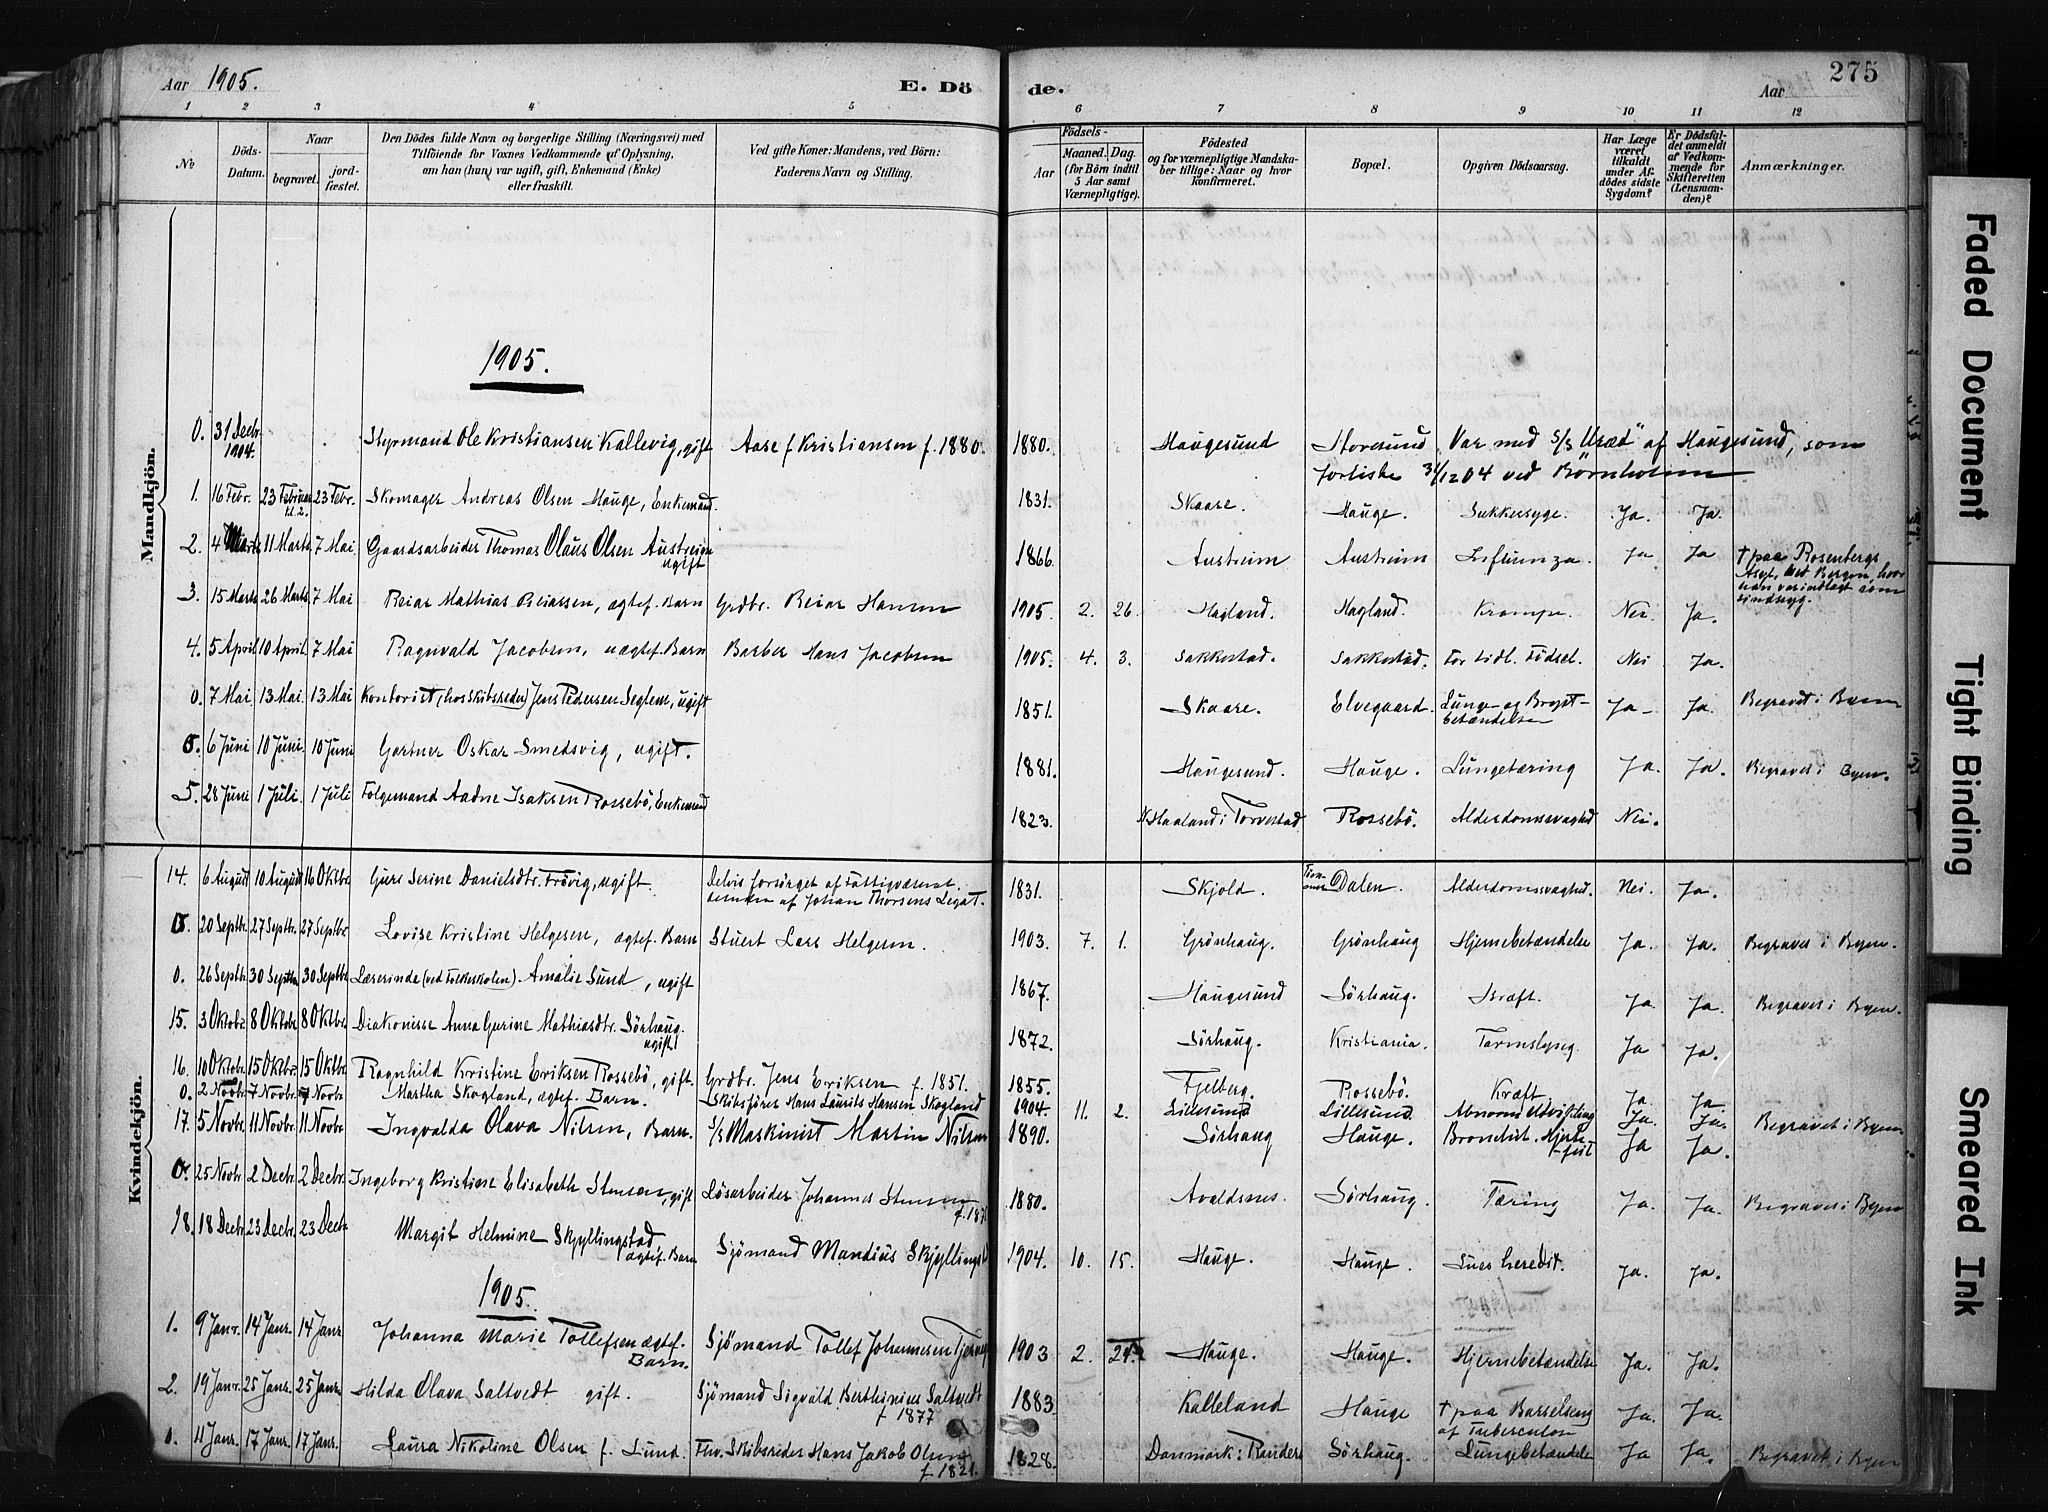 Aar 1905. E. Dö de. Aar 275
1 2 3 4 5 6 7 8 9 10 11 12
No
Döds-Datum.
Naar
begravet.
jordfæstet.
Den Dödes fulde Navn og borgerlige Stilling (Næringsvei) med
Tilföiende for Voxnes Vedkommende af Oplysning,
om han (hun) var ugift, gift, Enkemand (Enke)
eller fraskilt.
Ved gifte Koner: Mandens, ved Börn:
Faderens Navn og Stilling.
Födsels-
Aar
Maaned. Dag.
(for Börn indtil
5 Aar samt
Værnepligtige).
Födested
og for værnepligtige Mandska-
ber tillige: Naar og hvor
konfirmeret.
Bopæl.
Opgiven Dödsaarsag.
Har Læge
været
tilkaldt
under Af-
dödes sidste
Sygdom?
Er Dödsfal-
det anmeldt
af Vedkom-
mende for
Skifteretten
(Lensman-
den)?
Anmærkninger.
Mandkjön.
1905.
0. 31 Decbr. 1904. Styrmand Ole Kristiansen Kallevig, gift Aase f. Kristiansen f. 1880. 1880. Haugesund Storesund Var med S/S "Uræd" af Haugesund, som
forliste 31/12 04 ved Börnholm
1. 16 Febr. 23 Februar 23 Febr. Skomager Andreas Olsen Hauge, Enkemand. 1831. Skaare. Hauge. Sukkersyge. Ja. Ja.
2. 4 Marts 11 Marts 7 Mai Gaardsarbeider Thomas Olaus Olsen Austreim ugift 1866. Austreim Austreim Influenza Ja Ja † paa Rosenbergs
Asyl, ved Bergen, hvor
han var indlagt som
sindssyg.
3. 15 Marts 26 Marts 7 Mai Reiar Mathias Reiarsen, ægtef. Barn Grdbr. Reiar Hansen 1905. 2. 26. Hagland. Hagland. Krampe. Nei Ja.
4. 5 April 10 April 7 Mai Ragnvald Jacobsen, uægtef. Barn Barber Hans Jacobsen 1905. 4. 3. Sakkestad. Sakkestad. For tidl. Födsel. Nei Ja.
0. 7 Mai 13 Mai 13 Mai Kontorist (hos Skibsreder) Jens Pedersen Seglem, ugift 1851. Skaare. Elvegaard. Lunge- og Bryst-
betændelse Ja Ja. Begravet i Byen
0. 6 Juni 10 Juni. 10 Juni Gartner Oskar Smedsvig, ugift. 1881. Haugesund. Hauge. Lungetæring Ja. Ja. Begravet i Byen.
5. 28 Juni 1 Juli. 1 Juli Folgemand Aadne Isaksen Rossebö, Enkemand 1823. N Haaland i Torvestad Rossebö. Alderdomssvaghed Nei.
Kvindekjön.
14. 6 August 10 August 16 Oktbr. Guri Serine Danielsdtr. Frövig, ugift. Delvis forsörget af Fattigvæsenet.
af Johan Thorsens Legat. 1831. Skjold. Dalen. Alderdomssvaghed. Nei. Ja.
0. 20 Septbr. 27 Septbr. 27 Septbr Lovise Kristine Helgesen, ægtef. Barn Stuert Lars Helgesen. 1903. 7. 1. Grönhaug. Grönhaug Hjernebetændelse Ja. Ja. Begravet i Byen.
0. 26 Septbr. 30 Septbr. 30 Septbr Lærerinde (ved Folkeskolen) Amalie Sund, ugift 1867. Haugesund Sörhaug. Kræft. Ja Ja. Begravet i Byen.
15. 3 Oktobr. 8 Oktobr. 8 Oktbr. Diakonisse Anna Gurine Mathiasdtr. Sörhaug. ugift. 1872. Sörhaug. Kristiania. Tarmslyng. Ja Ja.
16. 10 Oktobr. 15 Oktbr. 15 Oktbr. Ragnhild Kristine Eriksen Rossebö, gift. Grdbr. Jens Eriksen f. 1851. 1855. Fjelberg. Rossebö. Kræft Ja. Ja.
0. 2 Novbr. 7 Novbr. 7 Novbr Martha Skogland, ægtef. Barn. Skibsförer Hans Laurits Hansen Skogland 1904. 11. 2. Lillesund Lillesund. Abnorm Udvikling Ja. Ja. Begravet i Byen
17. 5 Novbr. 11 Novbr. 11 Novbr Ingvalda Olava Nilsen, Barn. S/S Maskinist Martin Nilsen 1890. Sörhaug Hauge. Bronchit. Hjerte- Ja Ja.
0. 25 Novbr. 2 Decbr. 2 Decbr. Ingeborg Kristine Elisabeth Stensen, gift Lösarbeider Johannes Stensen
f. 187 1880. Avaldsnes. Sörhaug. Tæring Ja. Ja. Begravet i Byen
18. 18 Decbr. 23 Decbr. 23 Decbr Margit Helmine Skjyllingstad
ægtef. Barn Sjömand Mandius Skjyllingst 1904. 10. 15. Hauge. Hauge. Lues heredit. Ja. Ja.
1905.
1. 9 Janr. 14 Janr. 14 Janr. Johanna Marie Tollefsen ægtef.
Barn. Sjömand Tollef Johannesen 1903 2. 21. Hauge. Hauge. Hjernebetændelse Ja. Ja.
2. 19 Janr. 25 Janr. 25 Janr. Hilda Olava Saltvedt gift. Sjömand Sigvald Berthinius Saltvedt
f. 1877 1883. Kalleland Hauge † paa Barselseng
af Tuberculose Ja. Ja.
0. 11 Janr. 17 Janr. 17 Janr. Laura Nikoline Olsen f. Lund. Fhv. Skibsreder Hans Jakob Olsen
f. 1821. 1828. Danmark: Randers Sörhaug. Lungebetændelse Ja Ja. Begravet i Byen
Faded Document
Tight Binding
Smeared Ink